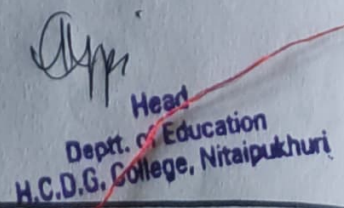 Head
Deptt. of Education
H.C.D.G. College, Nitaipukhuri